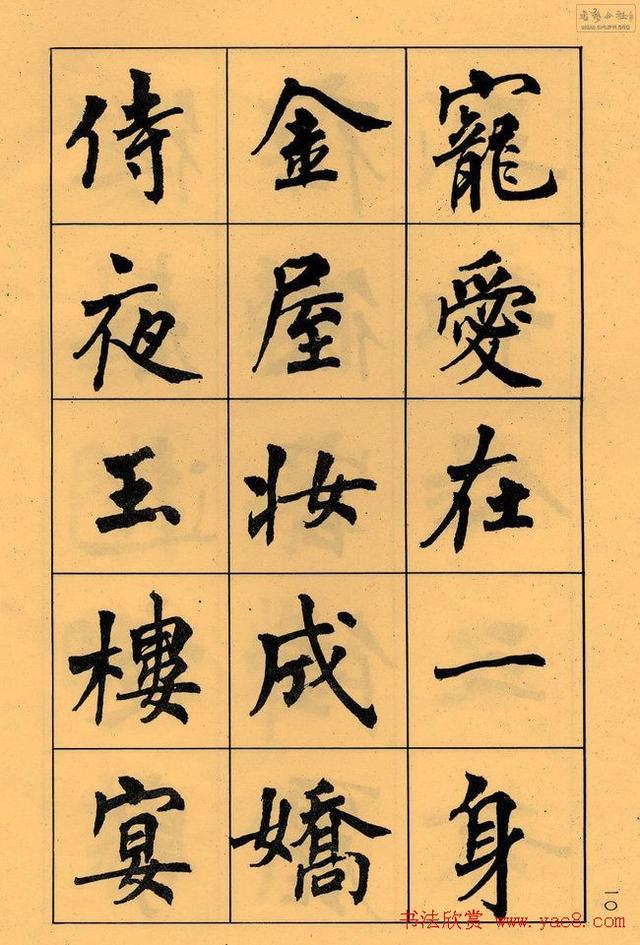 寵愛在一身
金屋妝成嬌
侍夜玉樓宴
10
书法欣赏 www.yac8.com